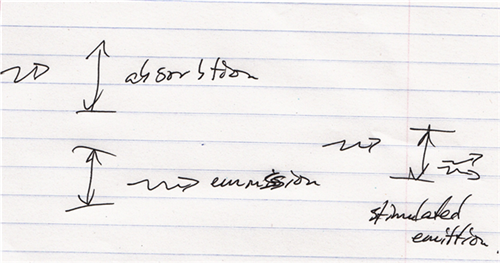 absorbtion
emmission
stimulated
emittion.